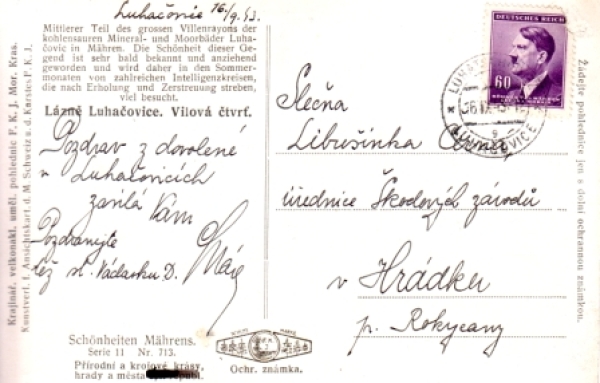 Luhačovice 16/9.43.
Mittlerer Teil des grossen Villenrayons der
kohlensauren Mineral- und Moorbäder Luha-
čovic in Mähren. Die Schönheit dieser Ge-
gend ist sehr bald bekannt und anziehend
geworden und wird daher in den Sommer-
monaten von zahlreichen Intelligenzkreisen,
die nach Erholung und Zerstreuung streben,
viel besucht.
Lázně Luhačovice. Vilová čtvrť.
Pozdrav z dovolené
v Luhačovicích
zasílá Vám
Pozdravujte
též sl. Václavku D.
Schönheiten Mährens.
Serie 11 Nr. 713.
Přírodní a krajové krásy,
hrady a města
Ochr. známka.
Krajinář. velkonakl. uměl. pohlednic F. K. J. Mor. Kras.
Kunstverl. f. Ansichtskart. d. M. Schweiz u. d. Karstes F. K. J.
DEUTSCHES REICH
60
LUHATSCHOWITZ
LUHAČOVICE
Slečna
Libušinka
úřednice Škodových závodů
v Hrádku
p. Rokycany
Žádejte pohlednice jen s dolní ochrannou známkou.